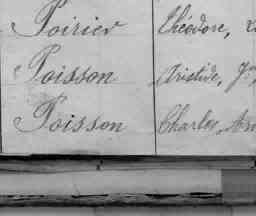 Poirier Théodore,
Poisson Aristide, J
Poisson Charles, Ar